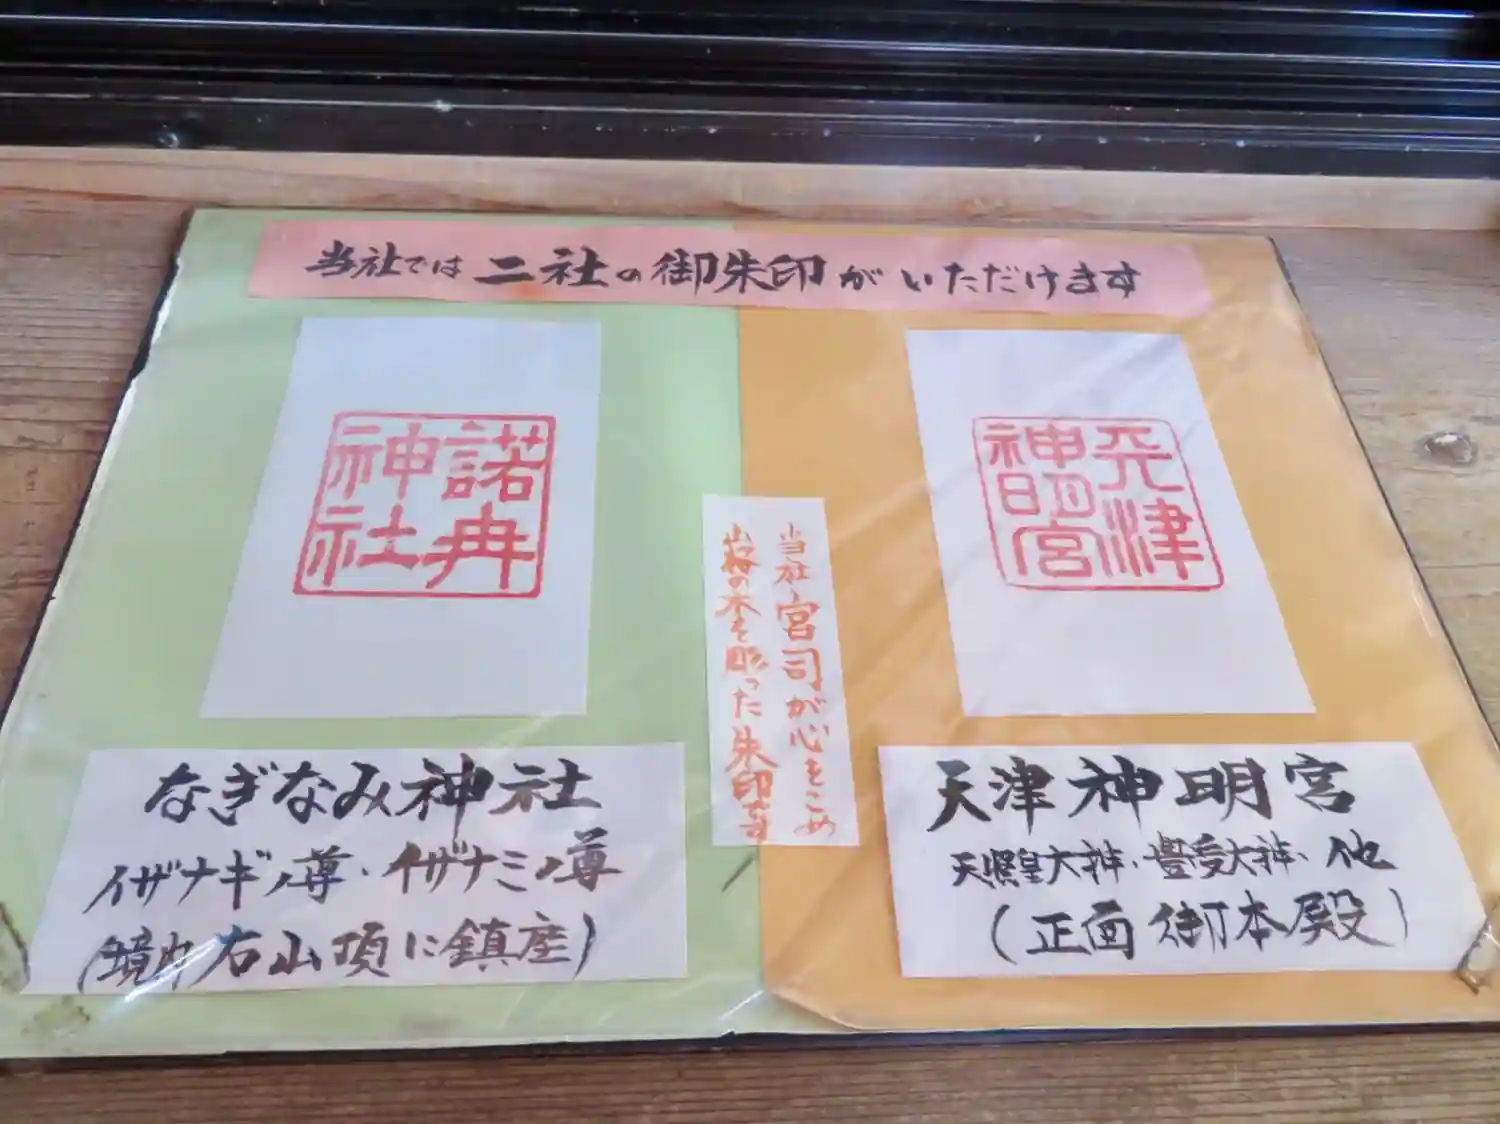 当社では二社の御朱印がいただけます
諾冉
神社
天津
神明宮
当社宮司が心をこめ
山桜の木を彫った朱印です
なぎなみ神社
イザナギノ尊・イザナミノ尊
(境内右山頂に鎮座)
天津神明宮
天照皇大神・豊受大神、他
(正面 御本殿)